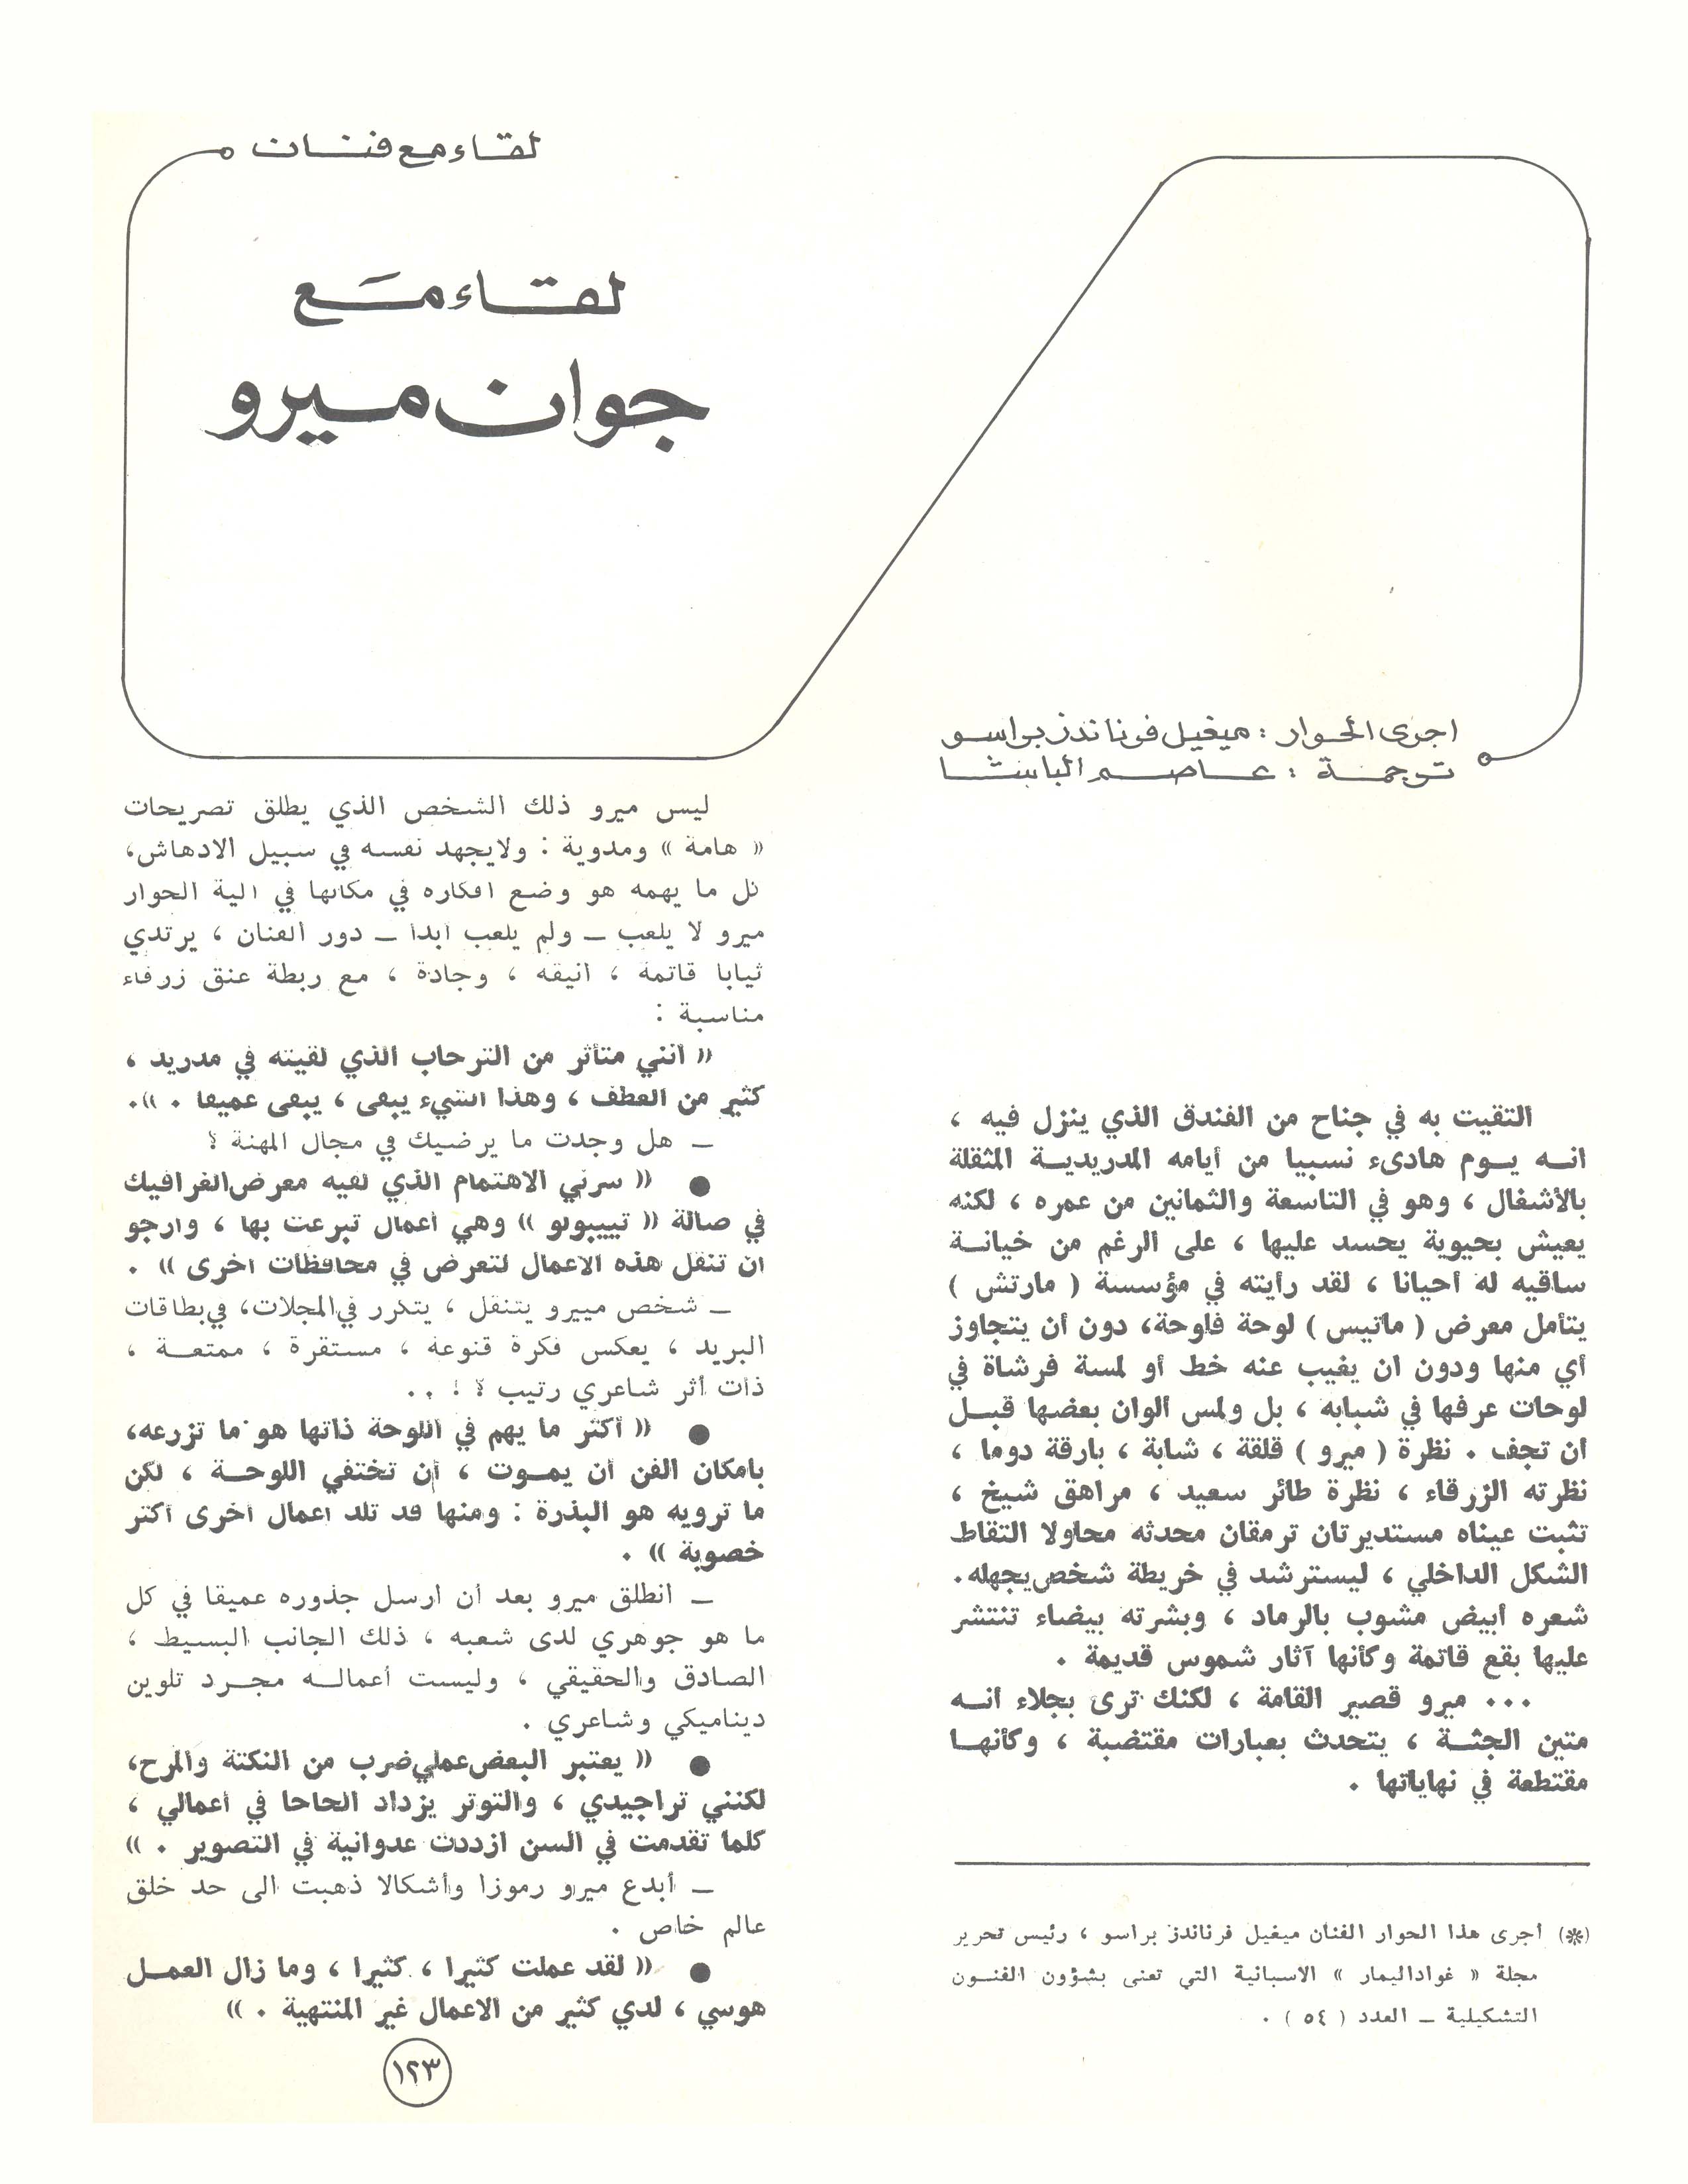 لقاء مع فنان
لقاء مع
جوان ميرو
اجرى الحوار : ميغيل فرناندز براسو
ترجمة : عاصم الباشا
التقيت به في جناح من الفندق الذي ينزل فيه ،
انه يوم هادىء نسبيا من أيامه المدريدية المثقلة
بالأشغال ، وهو في التاسعة والثمانين من عمره ، لكنه
يعيش بحيوية يحسد عليها ، على الرغم من خيانة
ساقيه له أحيانا ، لقد رأيته في مؤسسة ( مارتش )
يتأمل معرض ( ماتيس ) لوحة فلوحة، دون أن يتجاوز
أي منها ودون ان يغيب عنه خط أو لمسة فرشاة في
لوحات عرفها في شبابه ، بل ولمس ألوان بعضها قبل
أن تجف . نظرة ( ميرو ) قلقة ، شابة ، بارقة دوما ،
نظرته الزرقاء ، نظرة طائر سعيد ، مراهق شيخ ،
تثبت عيناه مستديرتان ترمقان محدثه محاولا التقاط
الشكل الداخلي ، ليسترشد في خريطة شخص يجهله.
شعره أبيض مشوب بالرماد ، وبشرته بيضاء تنتشر
عليها بقع قاتمة وكأنها آثار شموس قديمة .
... ميرو قصير القامة ، لكنك ترى بجلاء أنه
متين الجثة ، يتحدث بعبارات مقتضبة ، وكأنها
مقتطعة في نهاياتها .
(*) أجرى هذا الحوار الفنان ميغيل فرناندز براسو ، رئيس تحرير
مجلة « غواداليمار » الاسبانية التي تعنى بشؤون الفنون
التشكيلية ـ العدد ( ٥٤ ) .
ليس ميرو ذلك الشخص الذي يطلق تصريحات
« هامة » ومدوية : ولايجهد نفسه في سبيل الادهاش،
كل ما يهمه هو وضع افكاره في مكانها في الية الحوار
ميرو لا يلعب ـ ولم يلعب ابدا ـ دور الفنان ، يرتدي
ثيابا قاتمة ، انيقه ، وجادة ، مع ربطة عنق زرقاء
مناسبة :
« أنني متأثر من الترحاب الذي لقيته في مدريد ،
كثير من العطف ، وهذا الشيء يبقى ، يبقى عميقا . ».
ـ هل وجدت ما يرضيك في مجال المهنة ؟
● « سرني الاهتمام الذي لقيه معرض الغرافيك
في صالة « تييبولو » وهي أعمال تبرعت بها ، وارجو
ان تنقل هذه الاعمال لتعرض في محافظات اخرى » .
ـ شخص مييرو يتنقل ، يتكرر في المجلات، في بطاقات
البريد ، يعكس فكرة قنوعة ، مستقرة ، ممتعة ،
ذات أثر شاعري رتيب ؟ ! ..
● « أكثر ما يهم في اللوحة ذاتها هو ما تزرعه،
بامكان الفن أن يموت ، أن تختفي اللوحة ، لكن
ما ترويه هو البذرة : ومنها قد تلد اعمال اخرى أكثر
خصوبة » .
ـ انطلق ميرو بعد أن ارسل جذوره عميقا في كل
ما هو جوهري لدى شعبه ، ذلك الجانب البسيط ،
الصادق والحقيقي ، وليست أعماله مجرد تلوين
ديناميكي وشاعري .
● « يعتبر البعض عملي ضرب من النكتة والمرح،
لكنني تراجيدي ، والتوتر يزداد الحاحا في أعمالي ،
كلما تقدمت في السن ازددت عدوانية في التصوير . »
ـ أبدع ميرو رموزا وأشكالا ذهبت الى حد خلق
عالم خاص .
● « لقد عملت كثيرا ، كثيرا ، وما زال العمل
هوسي ، لدي كثير من الاعمال غير المنتهية . »
١٢٣